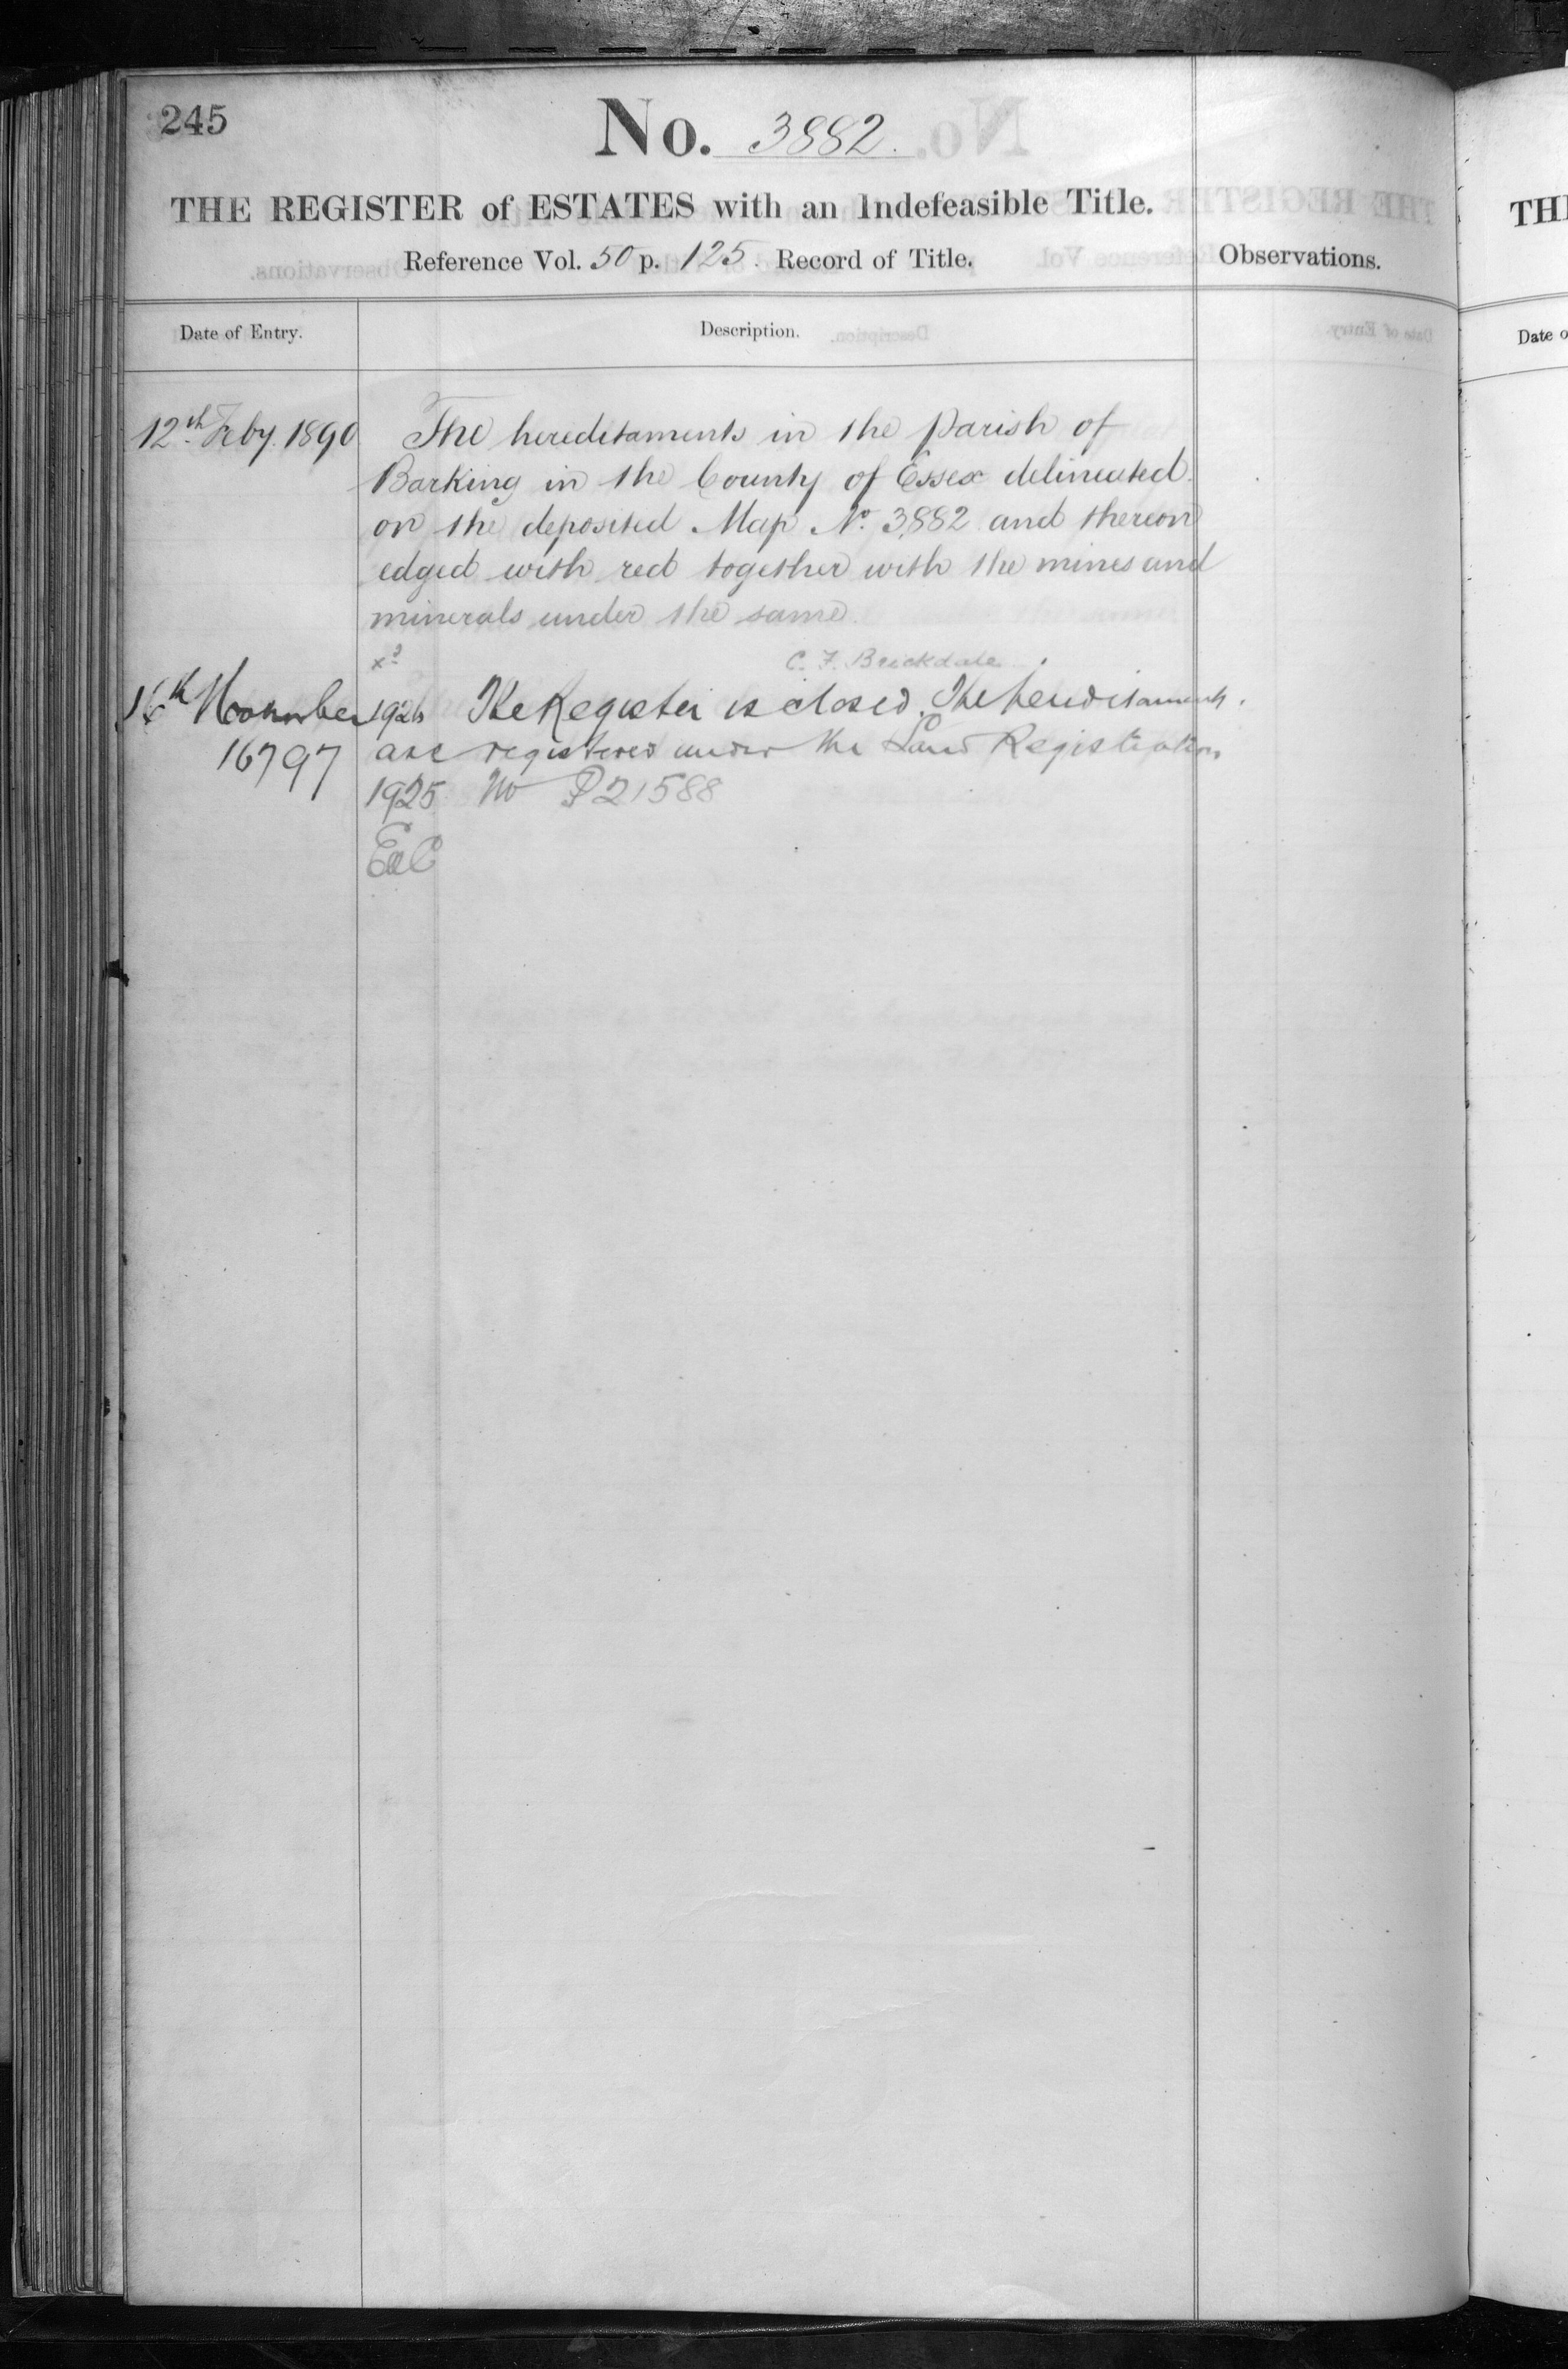 245
No. 3882.
THE REGISTER of ESTATES with an Indefeasible Title.
Reference Vol. 50 p. 125. Record of Title.
Observations.
Date of Entry.
Description.
12th Feby. 1890
The hereditaments in the parish of
Barking in the County of Essex delineated
on the deposited Map No. 3882 and thereon
edged with red together with the mines and
minerals under the same.
C. F. Brickdale
16th November 1926 The Register is closed. The hereditaments
16797 are registered under the Land Registration
1925 No P21588
TH
Date o